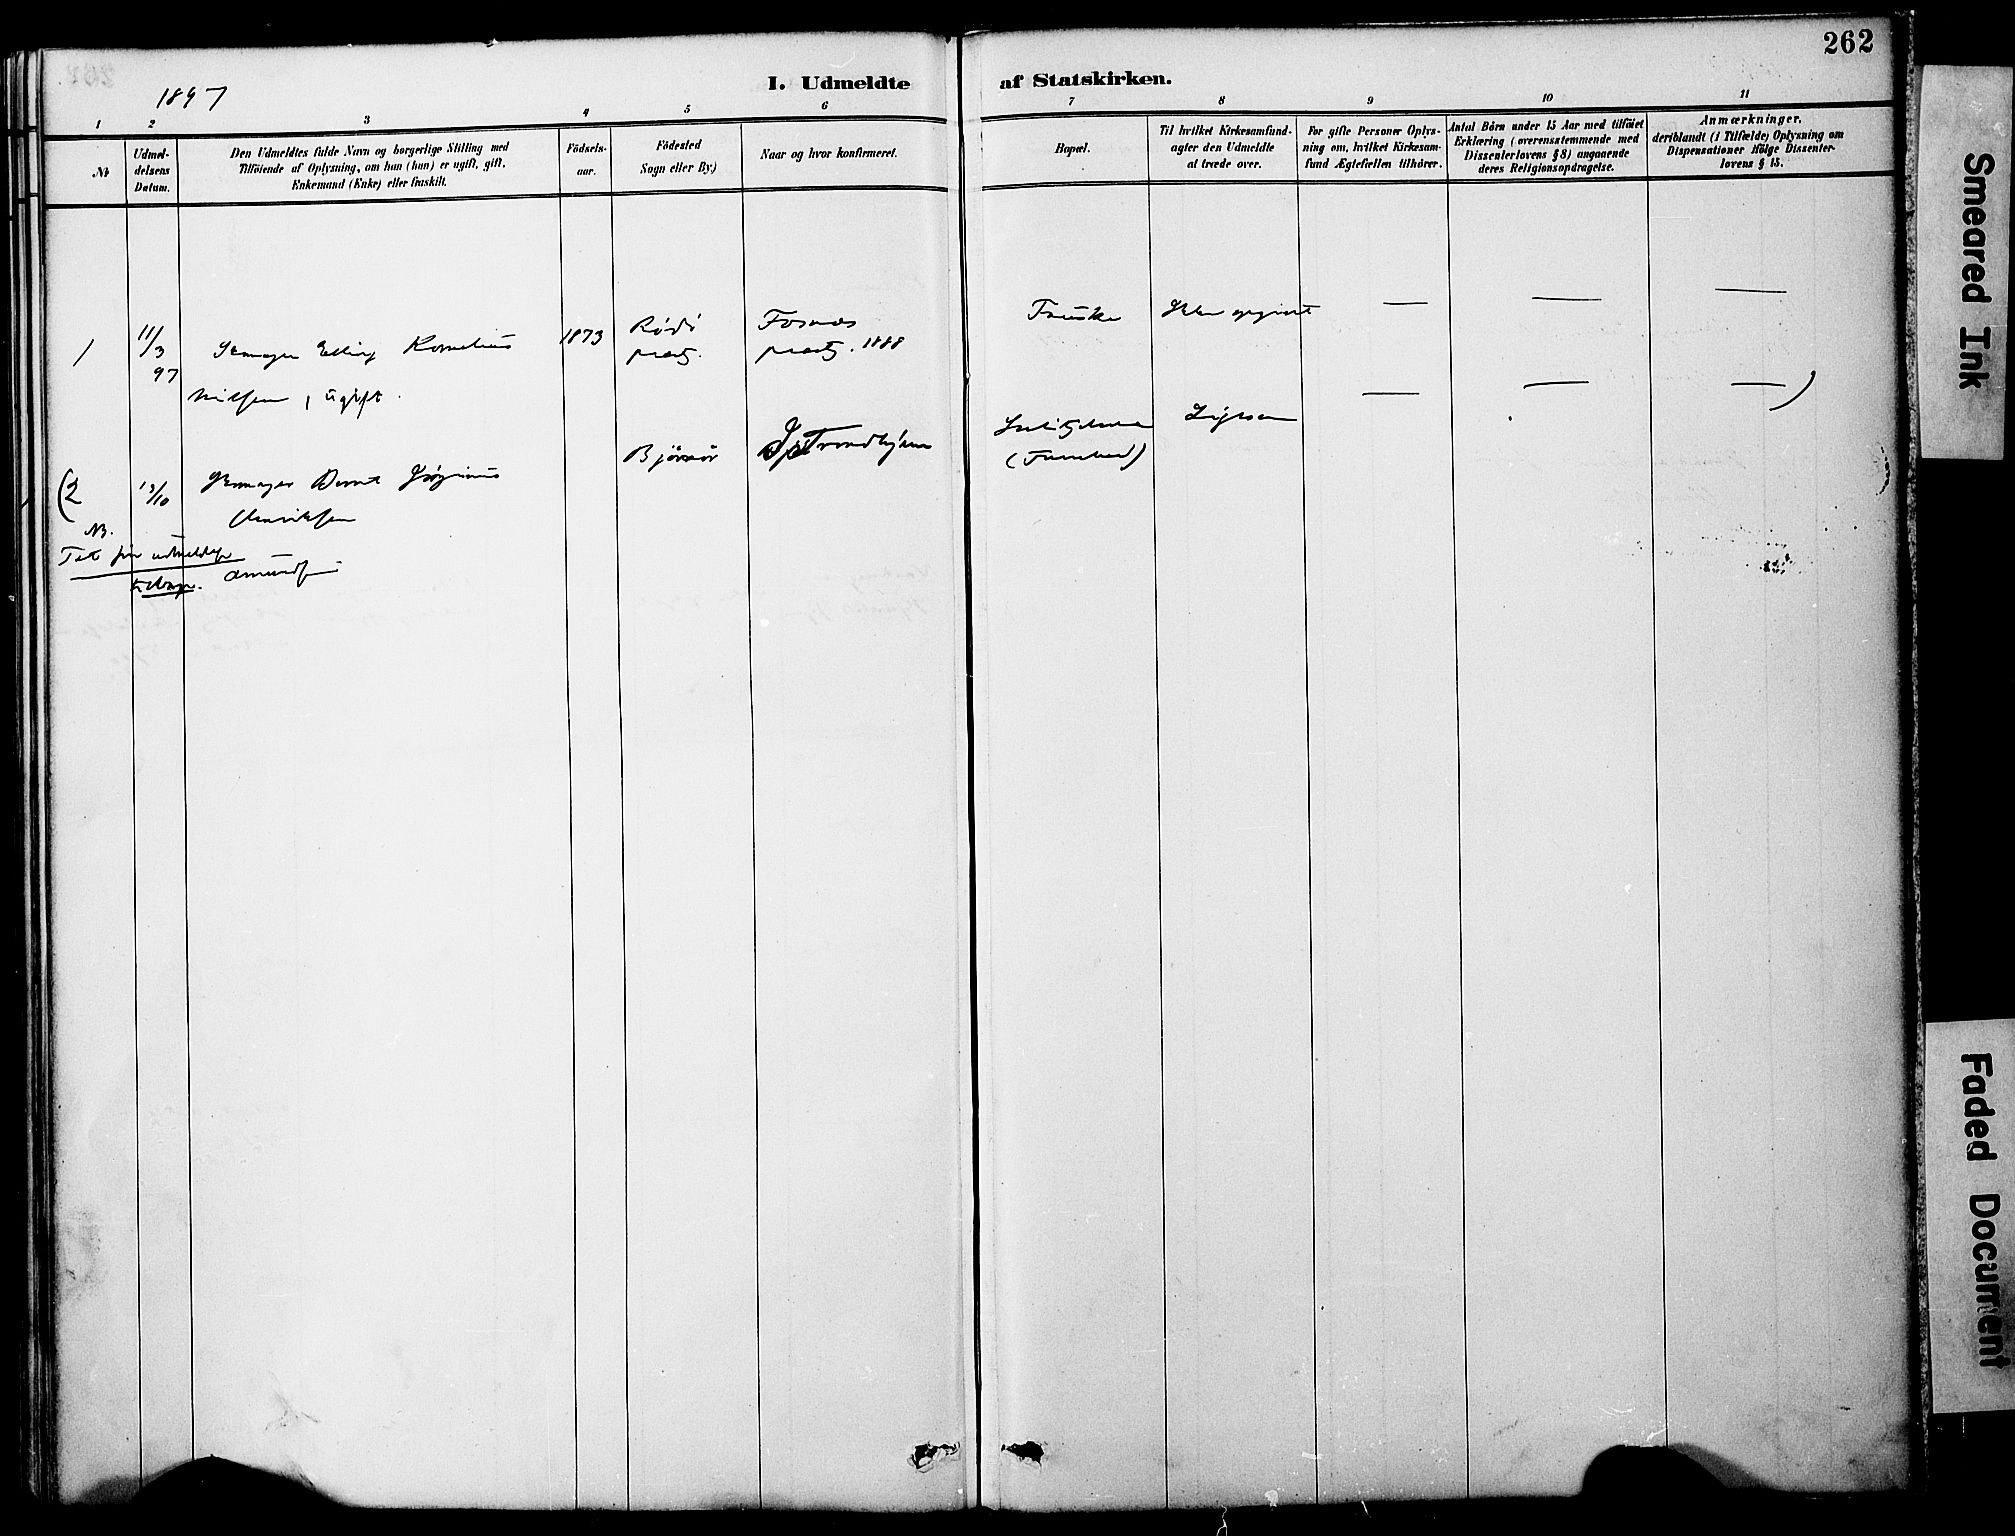 262
1897
I. Udmeldte af Statskirken.
1 2 3 4 5 6 7 8 9 10 11
No
Udmel-
delsens
Datum.
Den Udmeldtes fulde Navn og borgerlige Stilling med
Tilföiende af Oplysning, om han (hun) er ugift, gift,
Enkemand (Enke) eller fraskilt.
Födsels-
aar.
Födested
Sogn eller By.)
Naar og hvor konfirmeret.
Bopæl.
Til hvilket Kirkesamfund-
agter den Udmeldte
at træde over.
For gifte Personer Oplys-
ning om, hvilket Kirkesam-
fund Ægtefællen tilhörer.
Antal Börn under 15 Aar med tilföiet
Erklæring (overensstemmende med
Dissenterlovens § 8) angaaende
deres Religionsopdragelse.
Anmærkninger,
deriblandt (i Tilfælde) Oplysning om
Dispensationer ifölge Dissenter-
lovens § 15.
1
11/3
97
Elling Kornelius
Nilsen, ugift.
1873
Rödö
præstg.
Fosnæs
præstg. 1888
Fauske
Ikke opgivet
—
—
—
(2
13/10
Bernt Jörginus
Henriksen
Björnör
Trondhjem
—
—
—)
NB.
Tat sin udmeldelse
tilbage. Amundsen
Smeared Ink
Faded Document